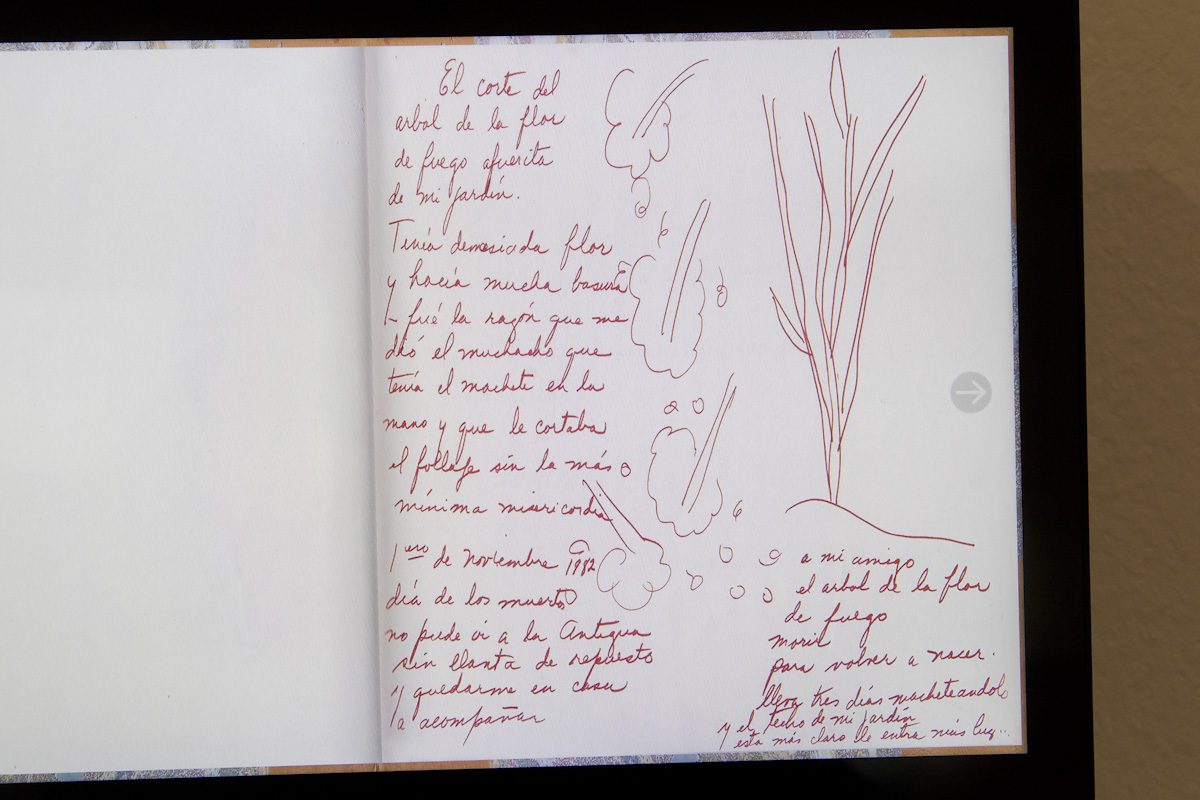 El corte del
arbol de la flor
de fuego afuerita
de mi jardín.
Tenía demasiada flor
y hacía mucha basura
- fué la razón que me
dió el muchacho que
tenía el machete en la
mano y que le cortaba
el follaje sin la más
mínima misericordia
1ero de noviembre 1982
día de los muertos
no pude ir a la Antigua
sin llanta de repuesto
y quedarme en casa
a acompañar
a mi amigo
el arbol de la flor
de fuego
morir
para volver a nacer.
lleva tres días macheteandolo
y el techo de mi jardín
esta más claro le entra más luz...